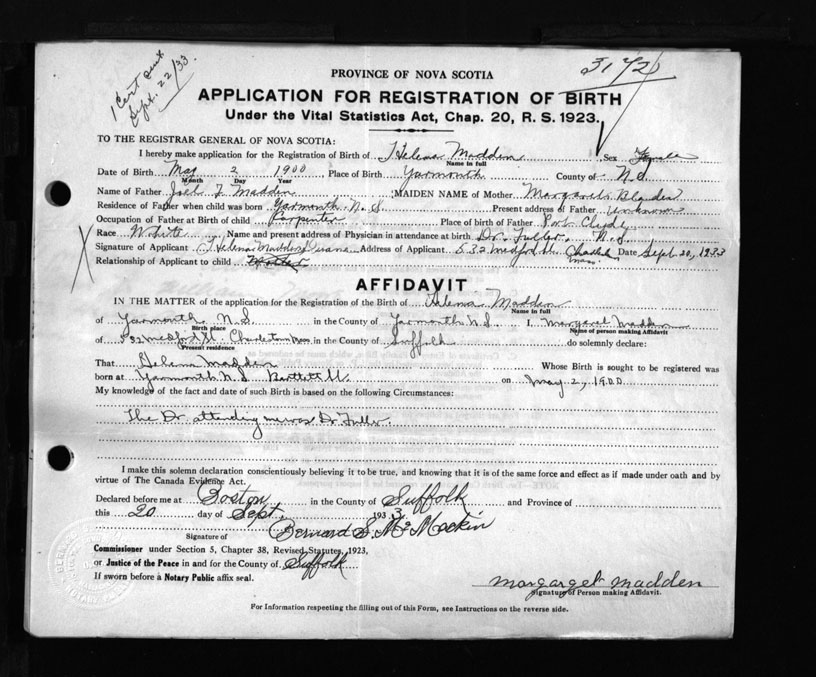 1 Cert sent
Sept. 22/33.
3172
PROVINCE OF NOVA SCOTIA
APPLICATION FOR REGISTRATION OF BIRTH
Under the Vital Statistics Act, Chap. 20, R. S. 1923.
TO THE REGISTRAR GENERAL OF NOVA SCOTIA:
I hereby make application for the Registration of Birth of Helena Madden Sex Female
Name in full
Date of Birth May 2 1900 Place of Birth Yarmouth County of N.S.
Month Day Year
Name of Father Madden MAIDEN NAME of Mother Margaret
Residence of Father when child was born Yarmouth N. S. Present address of Father unknown
Occupation of Father at Birth of child Carpenter Place of birth of Father Port Clyde
Race White Name and present address of Physician in attendance at birth Dr. Fuller. N.S.
Signature of Applicant Helena Madden Address of Applicant 532 Medford St. Date Sept 20, 1933
Mass.
Relationship of Applicant to child Mother
AFFIDAVIT
IN THE MATTER of the application for the Registration of the Birth of Helena Madden
Name in full
of Yarmouth N.S. in the County of Yarmouth N.S. I, Margaret Madden
Birth place Name of person making Affidavit
of 532 Medford St Charlestown Mass in the County of Suffolk do solemnly declare:
Present residence
That Helena Madden Whose Birth is sought to be registered was
born at Yarmouth N.S. Bartlett St. on May 2, 1900
My knowledge of the fact and date of such Birth is based on the following Circumstances:
The Dr attending me was Dr Fuller.
I make this solemn declaration conscientiously believing it to be true, and knowing that it is of the same force and effect as if made under oath and by
virtue of The Canada Evidence Act.
Declared before me at Boston in the County of Suffolk and Province of
this 20 day of Sept. 1933
Signature of Bernard S. McMackin
Commissioner under Section 5, Chapter 38, Revised Statutes, 1923,
or Justice of the Peace in and for the County of Suffolk
If sworn before a Notary Public affix seal.
Margarget Madden
Signature of Person making Affidavit.
For Information respecting the filling out of this Form, see Instructions on the reverse side.